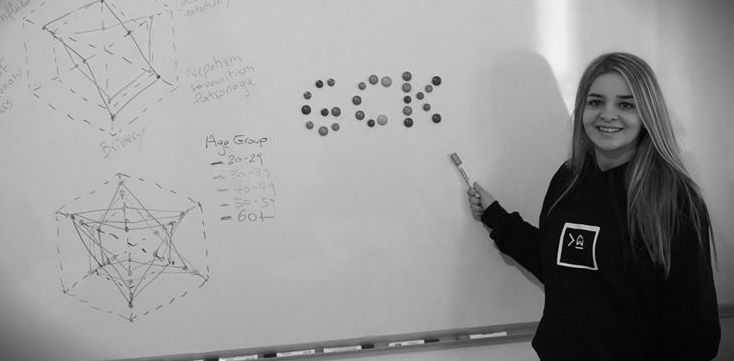 Nepotism
Favouritism
Patronage
Bribery
Age Group
20-29
30-39
40-49
50-59
60+
GCK